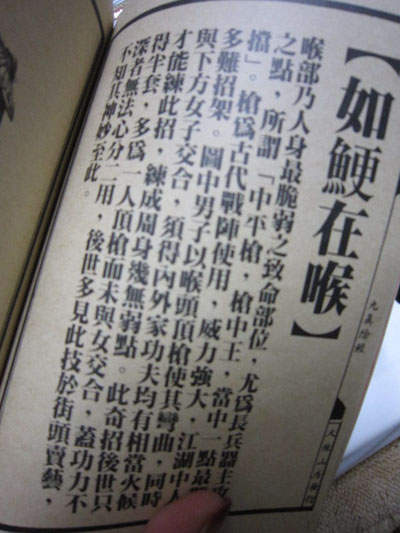 【如鯁在喉】
喉部乃人身最脆弱之致命部位，尤爲長兵器主攻
之點，所謂「中平槍，槍中王，當中一點最難
擋」。槍爲古代戰陣使用，威力強大，江湖中人
多難招架。圖中男子以喉頭頂槍使其彎曲，同時
與下方女子交合，須得內外家功夫均有相當火候
才能練此招，練成周身幾無弱點。此奇招後世只
得半套，多爲一人頂槍而未與女交合，蓋功力不
深者無法心分二用，後世多見此技於街頭賣藝，
不知其神妙至此。